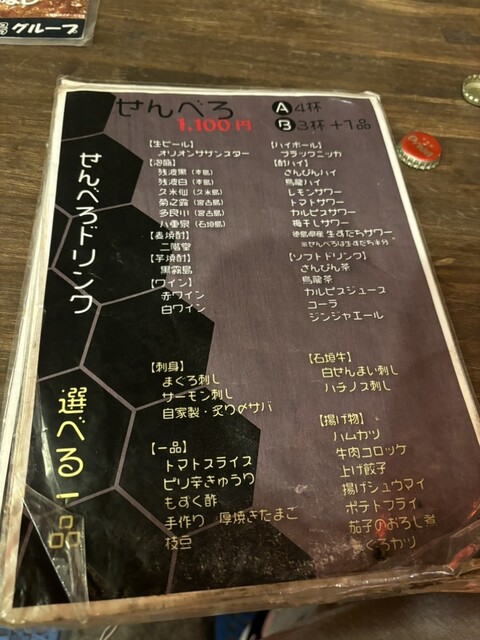 グループ
せんべろ
1,100円
Ⓐ4杯
Ⓑ3杯+1品
せんべろドリンク
【生ビール】
オリオンサザンスター
【泡盛】
残波黒(本島)
残波白(本島)
久米仙(久米島)
菊之露(宮古島)
多良川(宮古島)
八重泉(石垣島)
【麦焼酎】
二階堂
【芋焼酎】
黒霧島
【ワイン】
赤ワイン
白ワイン
【ハイボール】
ブラックニッカ
【酎ハイ】
さんぴんハイ
烏龍ハイ
レモンサワー
トマトサワー
カルピスサワー
梅干しサワー
徳島県産 生すだちサワー
※せんべろは生すだち半分
【ソフトドリンク】
さんぴん茶
烏龍茶
カルピスジュース
コーラ
ジンジャエール
選べる一品
【刺身】
まぐろ刺し
サーモン刺し
自家製・炙り〆サバ
【一品】
トマトスライス
ピリ辛きゅうり
もずく酢
手作り 厚焼きたまご
枝豆
【石垣牛】
白せんまい刺し
ハチノス刺し
【揚げ物】
ハムカツ
牛肉コロッケ
上げ餃子
揚げシュウマイ
ポテトフライ
茄子のおろし煮
まぐろカツ